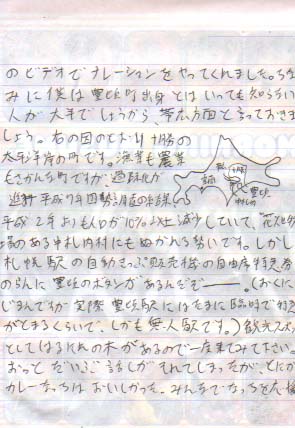 のビデオでナレーションをやってくれました。ちな
みに僕は豊頃町出身とはいっても知らない
人が大半でしょうから、帯広方面と言っておきま
しょう。右の図のとおり十勝の
太平洋岸の町です。漁業も農業
もさかんな町ですが、過疎化が
進み 平成7年国勢調査の結果
平成2年よりも人口が10%以上減少していて、
のある中札内村にもぬかれる勢いです。しかし
札幌駅の自動きっぷ販売機の自由席特急券
のらんに豊頃のボタンがあるんだぞー。(おくに
じまんですが実際 豊頃駅にはたまに臨時で特急
がとまるくらいで、しかも無人駅です。)
としてはるにれの木があるので一度来てみて下さい。
おっと だいぶ話しがそれてしまったが、とにか
カレー なっちは おいしかった。みんなでなっちを応援
豊頃